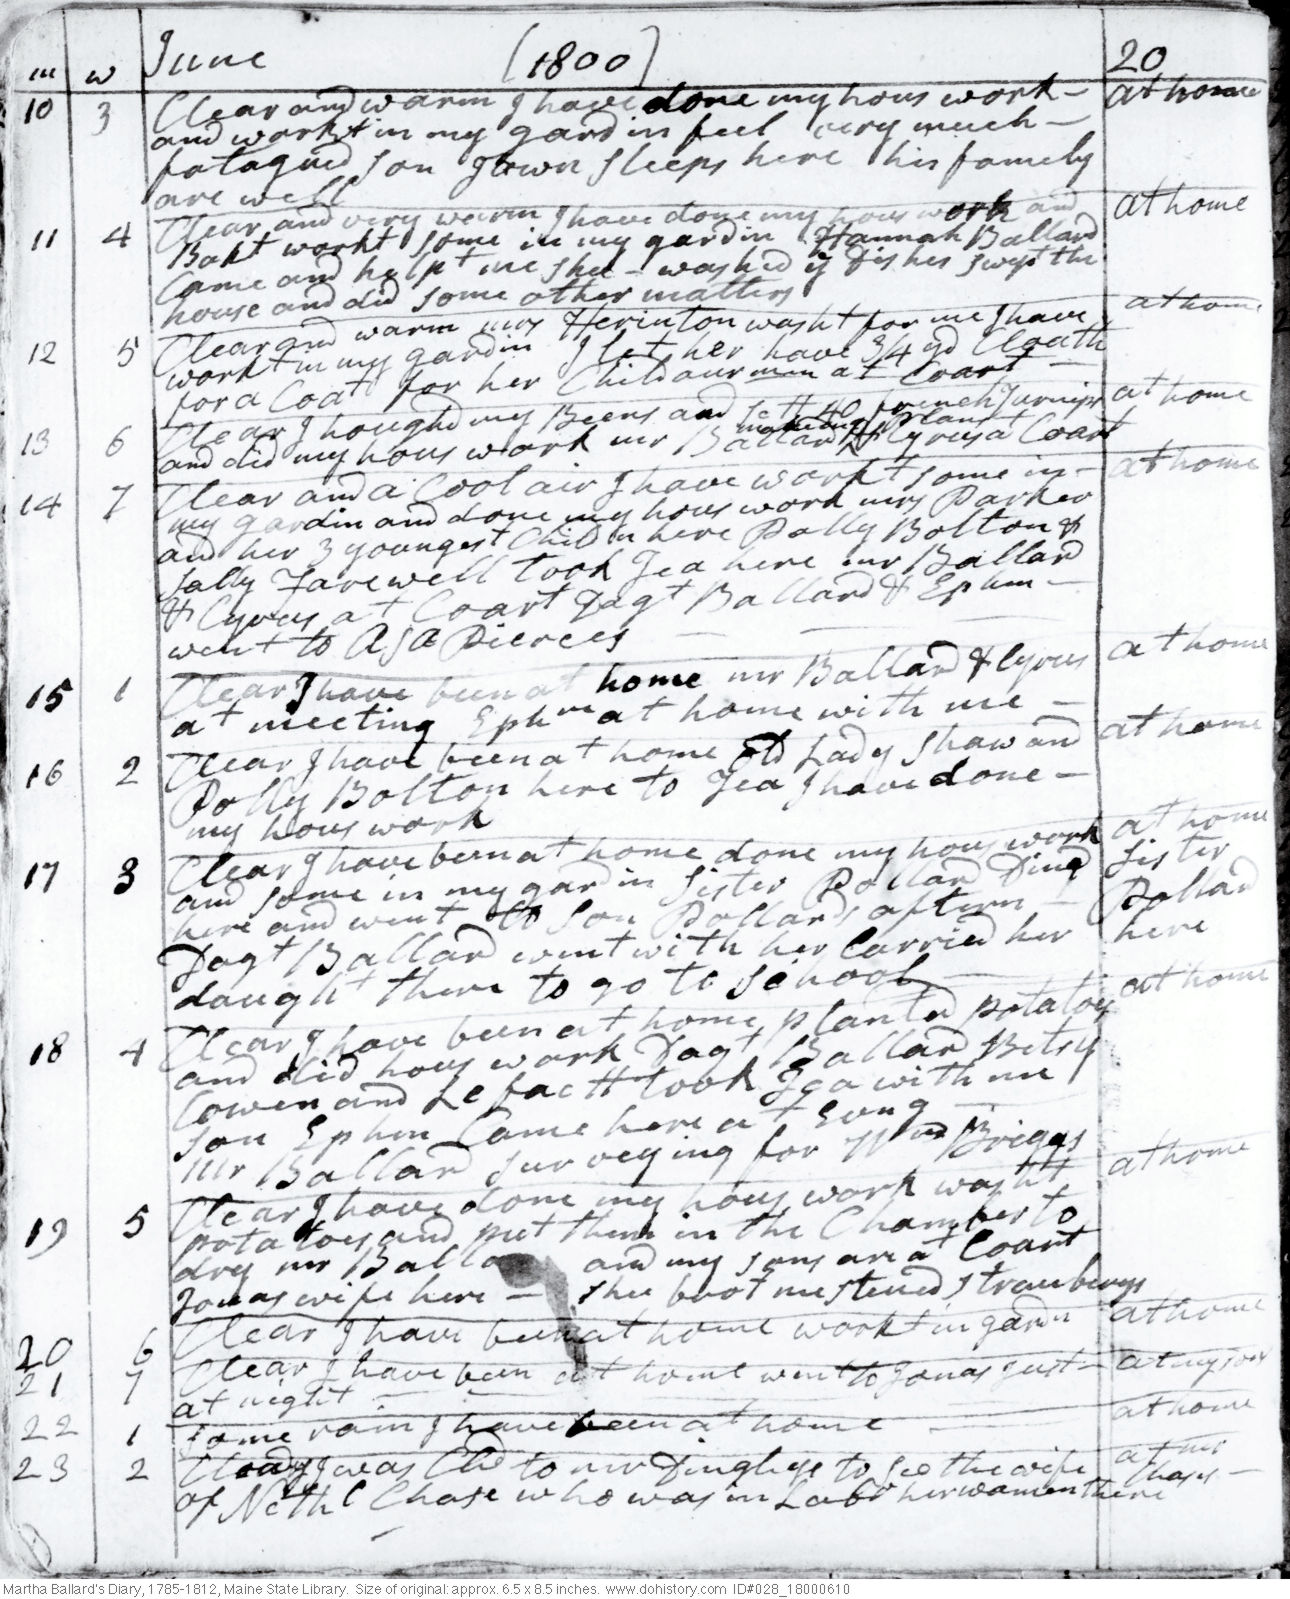 m w June (1800) 20
10 3 Clear and warm I have done my hous work – at home
and workt in my gardin feel very much –
fatagued son Town sleeps here his famely
are well
11 4 Clear and very warm I have done my hous work and at home
Bakt workt some in my gardin Hannah Ballard
Came and helpt me shee – washed ye Dishes swept the
house and did some other matters
12 5 Clear and warm mrs Herinton washt for me I have at home
workt in my gardin I let her have 3/4 yd Cloath
for a Coat for her Child our men at Coart –
13 6 Clear I houghd my Beens and sett 40 french Turnips at home
Plants
and did my hous work mr Ballard & Cyrus at Coart
14 7 Clear and a Cool air I have workt some in – at home
my gardin and done my hous work mrs Parker
and her 3 youngest Childn here Polly Bolton &
Sally Farewell took Tea here mr Ballard
& Cyrus at Coart Dagt Ballard & Ephm –
went to Asa Pierces
15 1 Clear I have been at home mr Ballard & Cyrus at home
at meeting Ephm at home with me –
16 2 Clear I have been at home old Lady Shaw and at home
Polly Bolton here to Tea I have done –
my hous work
17 3 Clear I have been at home done my hous work at home
and some in my gardin Sister Pollard Dind Sister
here and went to son Pollards aftern – Pollard
Dagt Ballard went with her Carried her here
daught there to go to school –
18 4 Clear I have been at home planted potatoes at home
and did hous work Dagt Ballard Betsy
Cowen and took Tea with me
son Ephm Came here at Evng –
mr Ballard surveying for Wm Briggs
19 5 Clear I have done my hous work washt at home
potatoes and put them in the Chamber to
dry mr Balla and my sons are at Coart
Jonas wife here – shee brot me stewed strawberys
20 6 Clear I have been at home workt in gardn at home
21 7 Clear I have been at home went to Jonas Just – at my sons
at night
22 1 some rain I have been at home – at home
23 2 Cloudy I was Clld to mr Dingleys to see the wife at mr
of Nathl Chase who was in Labr her women there Chases –
Martha Ballard's Diary, 1785-1812, Maine State Library. Size of original: approx. 6.5 x 8.5 inches. www.dohistory.com ID#028_18000610